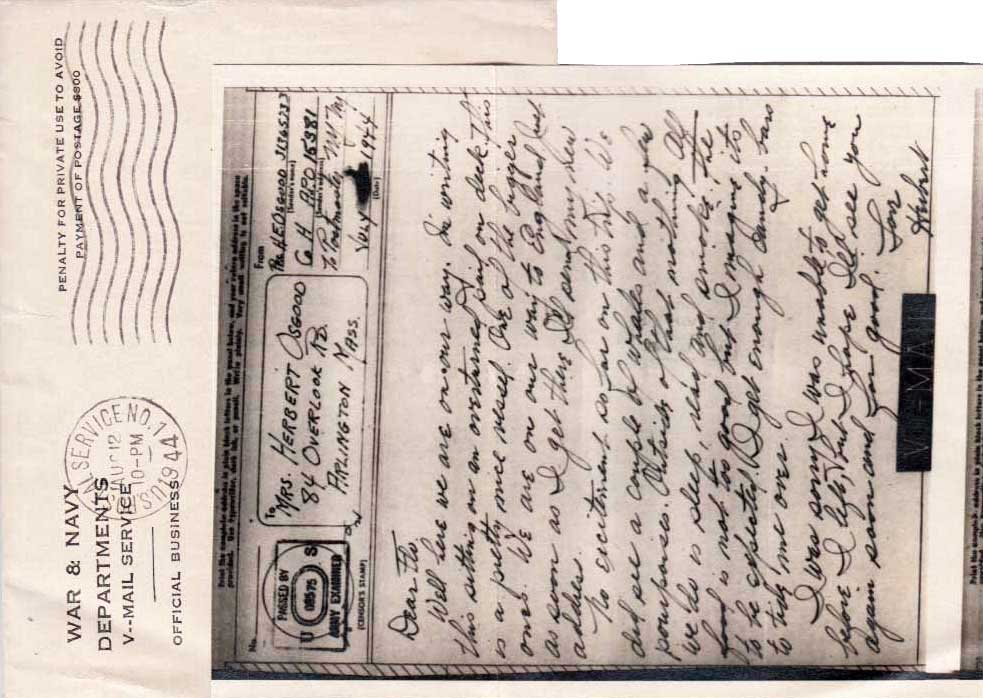 PENALTY FOR PRIVATE USE TO AVOID
PAYMENT OF POSTAGE $300
WAR & NAVY
DEPARTMENTS
V--MAIL SERVICE
OFFICIAL BUSINESS
SERVICE NO. 14
AUG 12
10-PM
1944
U.S.
Print the complete address in plain block letters in the panel below, and your return address in the space
provided. Use typewriter, dark ink, or pencil. Write plainly. Very small writing is not suitable.
No.
PASSED BY
U S
08575
ARMY EXAMINER
(CENSOR'S STAMP)
To
MRS. HERBERT OSGOOD
84 OVERLOOK RD.
ARLINGTON MASS.
From
Pvt. H.E. OSGOOD
(Sender's name)
Co H APO 15381
(Sender's address)
℅ Postmaster N.Y. N.Y.
1944
(Date)
Dear
Well here we are on our way. I'm writing
this sitting on an overturned pail on deck. This
is a pretty nice vessel. One of the bigger
ones. We are on our way to England but
as soon as I get there I'll send my new
address.
No excitement so far on this trip. We
did see a couple of whales and a few
porpoises. Outside of that nothing. All
we do is sleep, read and smoke. The
food is not too good but I imagine its
to be expected. I get enough candy bars
to tide me over.
I was sorry I was unable to get home
before I left, but I hope I'll see you
again soon and for good.
Love
Herbert
V···—MAIL